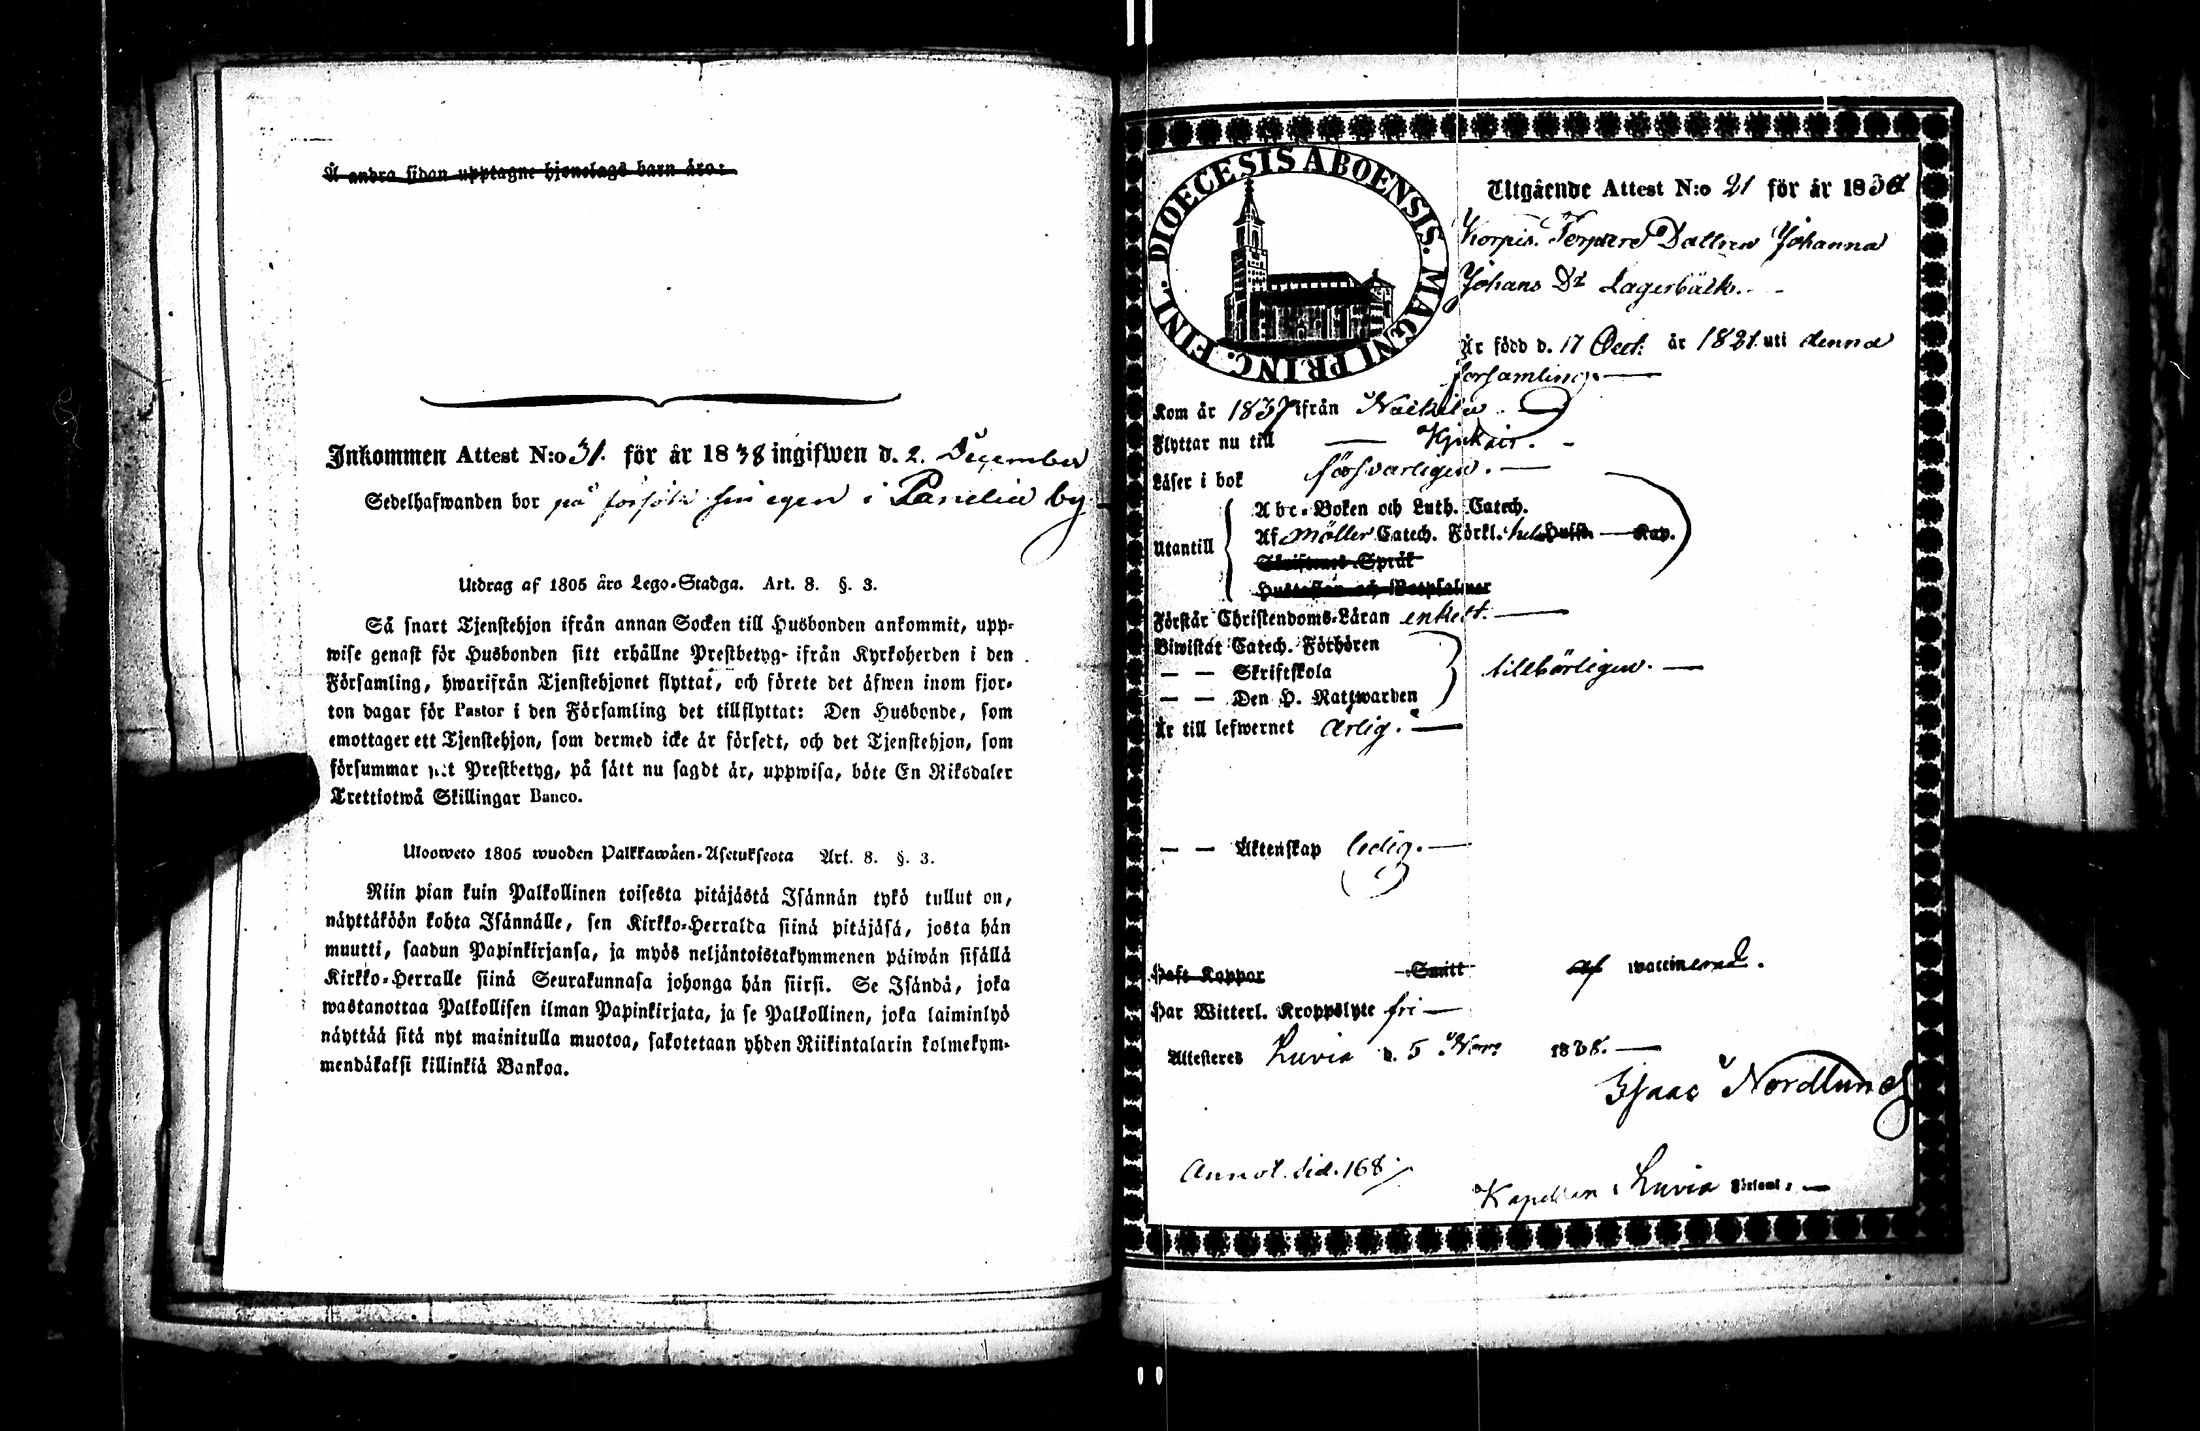 Å andra sidan upptagne hjonelags barn äro:
Inkommen Attest N:o 31. för år 1838 ingifwen d. 2. December
Sedelhafwanden bor på försök sin egen i Panelia by
Utdrag af 1805 års Lego-Stadga. Art. 8. §. 3.
Så snart Tjenstehjon ifrån annan Socken till Husbonden ankommit, upp-
wise genast för Husbonden sitt erhållne Prestbetyg ifrån Kyrkoherden i den
Församling, hwarifrån Tjenstehjonet flyttat, och förete det äfwen inom fjor-
ton dagar för Pastor i den Församling det tillflyttat: Den Husbonde, som
emottager ett Tjenstehjon, som dermed icke är försedt, och det Tjenstehjon, som
försummar Prestbetyg, på sätt nu sagdt är, uppwisa, böte En Riksdaler
Trettiotwå Skillingar Banco.
Ulosweto 1805 wuoden Palkkawäen-Asetuksesta Art. 8. §. 3.
Niin pian kuin Palkollinen toisesta pitäjästä Isännän tykö tullut on,
näyttäköön kohta Isännälle, sen Kirkko-Herralda siinä pitäjäsä, josta hän
muutti, saadun Papinkirjansa, ja myös neljäntoistakymmenen päiwän sisällä
Kirkko-Herralle siinä Seurakunnasa johonga hän siirsi. Se Isändä, joka
wastanottaa Palkollisen ilman Papinkirjata, ja se Palkollinen, joka laiminlyö
näyttää sitä nyt mainitulla muotoa, sakotetaan yhden Riikintalarin kolmekym-
mendäkaksi killinkiä Bankoa.
DIOECESIS ABOENSIS. MAGNI PRINC. FINL.
Utgående Attest N:o 21 för år 183
Korpis. Torpare Dattren Johanna
Johans Dr Lagerbäck.
Är född d. 17 Oct. år 1821. uti denna
församling.
Kom år 1837 ifrån Nackila.
Flyttar nu till Kjukais.
Läser i bok försvarligen.
Utantill
Abc-Boken och Luth. Catech.
Af Möller Catech. Förkl. hela Hufst. Kap.
Skriftenes Språk
Hustaflan och Botpsalmer
Förstår Christendoms-Läran enkelt.
Biwistat Catech. Förhören
— — Skriftskola
— — Den H. Nattwarden
tillbörligen.
Är till lefwernet ärlig.
— — Äktenskap ledig.
Haft Koppor Smitt af waccinerad.
Har Witterl. Kroppslyte fri
Attesteres Luvia d. 5 Novr 1838.
Isaac Nordlund
Annot. sid. 168
Kapellan i Luvia Församl.